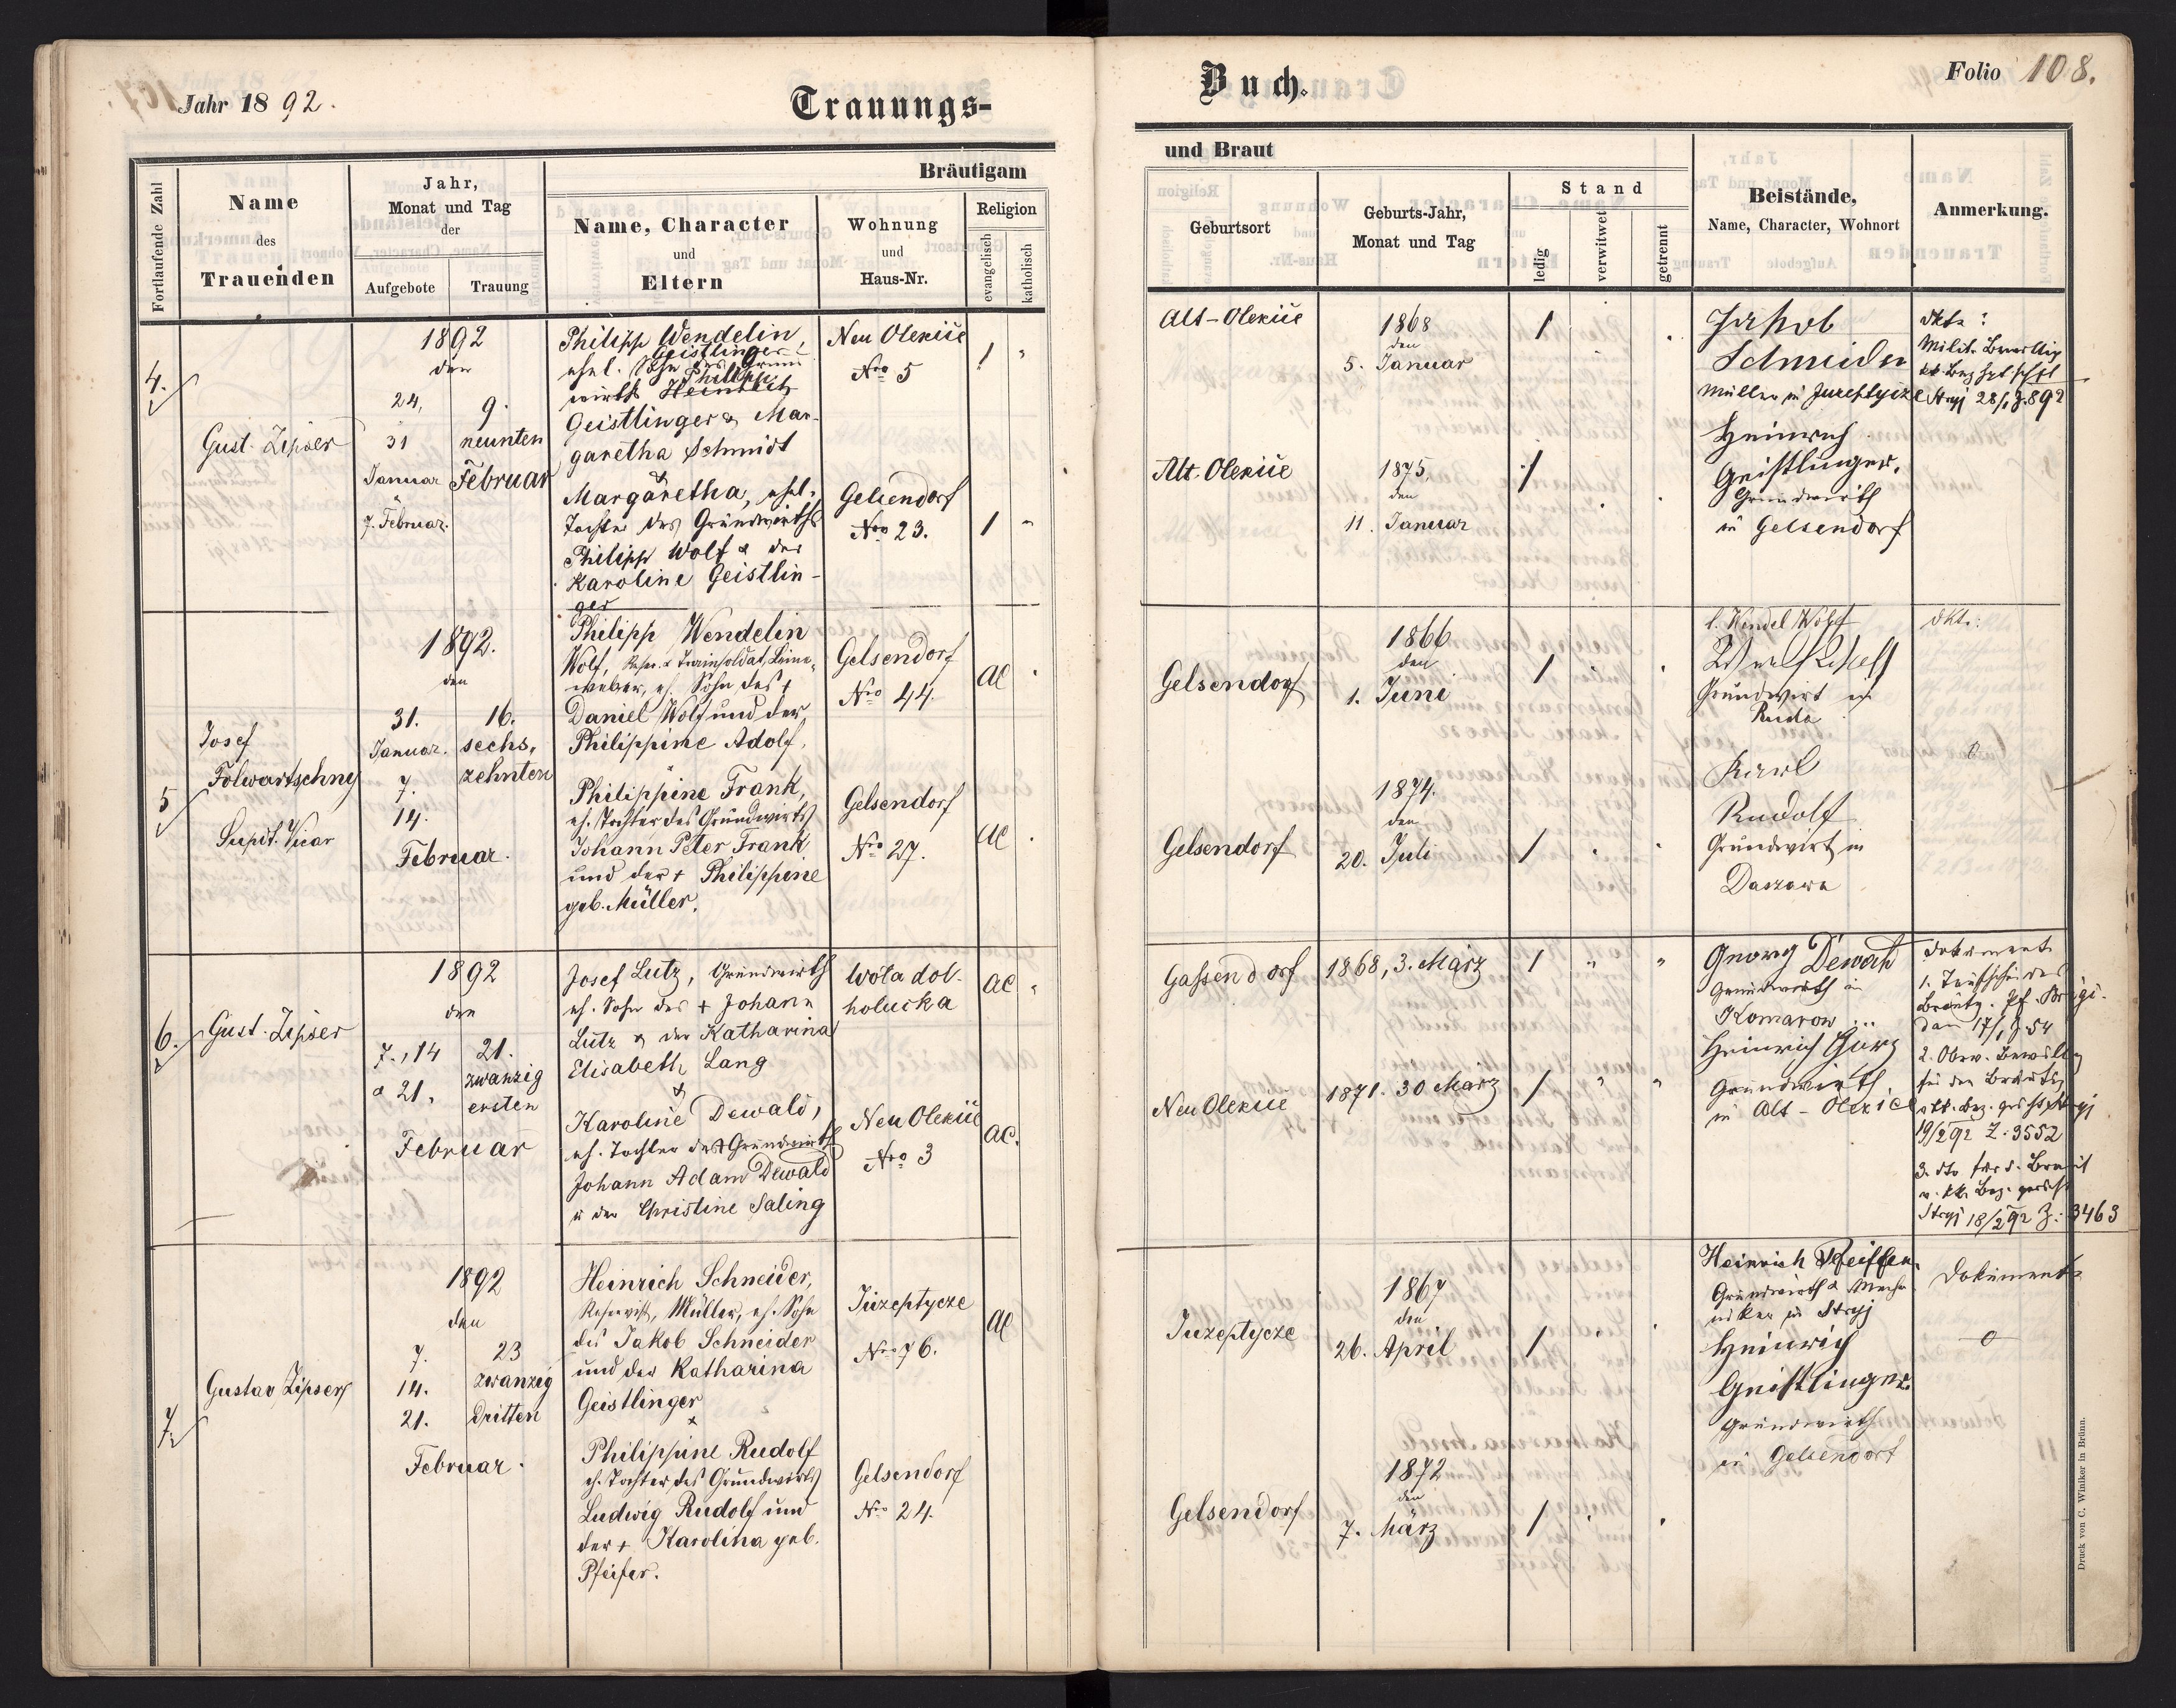 Jahr 1892.
Trauungs-
Fortlaufende Zahl
Name
des
Trauenden
Jahr,
Monat und Tag
der
Aufgebote
Trauung
Bräutigam
Name, Character
und
Eltern
Wohnung
und
Haus-Nr.
Religion
evangelisch
katholisch
4.
Gust. Zipser
1892
den
24,
31
Januar
7. Februar.
9.
neunten
Februar
Philipp Wendelin
Geistlinger
ehel. Sohn des Grund
Philipp
wirths Heinrich
Geistlinger & Mar-
garetha Schmidt
&
Margaretha, ehel.
Tochter des Grundwirths
Philipp Wolf & der
Karoline Geistlin-
ger
Neu Oleksice
Nro 5
Gelsendorf
Nro 23.
1 "
1 "
5
Josef
Folwartschny
Supdt. Vicar
1892.
den
31.
Januar.
7.
14.
Februar.
16.
sechs,
zehnten
Philipp Wendelin
Wolf, Reser. & Trainsoldat, Leine-
weber, eh. Sohn des +
Daniel Wolf und der
Philippine Adolf,
Philippine Frank,
eh. Tochter des Grundwirts
Johann Peter Frank
und der + Philippine
geb. Müller.
Gelsendorf
Nro 44.
Gelsendorf
Nro 27.
AC
AC
6.
Gust. Zipser
1892
den
7., 14
& 21.
21.
zwanzig
ersten
Februar
Josef Lutz, Grundwirth
eh. Sohn des + Johann
Lutz & der Katharina
Elisabeth Lang
&
Karoline Dewald,
eh. Tochter des Grundwirth
Johann Adam Dewald
u der Christine Saling
Wola dol-
holucka
Neu Oleksice
Nro 3
AC "
AC.
7.
Gustav Zipser
1892
den
7.
14.
21.
23
zwanzig
dritten
Februar.
Heinrich Schneider,
Reservist, Müller, eh. Sohn
des Jakob Schneider
und der Katharina
Geistlinger
&
Philippine Rudolf
eh. Tochter des Grundwirts
Ludwig Rudolf und
der + Karolina geb.
Pfeifer.
Juzeptycze
Nro 76.
Gelsendorf
Nro 24.
AC
Buch.
Folio 108.
und Braut
Geburtsort
Geburts-Jahr,
Monat und Tag
Stand
ledig
verwitwet
getrennt
Beistände,
Name, Character, Wohnort
Anmerkung.
Alt-Oleksice
1868
den
5. Januar
1
Alt-Oleksice
1875,
den
11. Januar
1
Jakob
Schneider
Müller in Juzeptycze
Heinrich
Geistlinger,
Grundwirth
in Gelsendorf
dkte:
Milit. Bewillig
kk Bez hptschft
Stryj 28/1 Z. 892
Gelsendorf
1866
den
1. Juni
1
Gelsendorf
1874.
den
20. Juli
1
Grundwirt in
Ruda
Karl
Rudolf
Grundwirt in
Daszawa
dkte:
0
Gassendorf
1868, 3. März
1 " "
Neu Oleksice
1871. 30 März
1 " "
Georg Dewald
Grundwirth in
Komarow
Heinrich
Grundwirth
in Alt-Oleksice
Dokumente
1. Taufschein des
17/1 Z. 54
für den Bräutig
19/2 92 Z: 3552
3. dto für d. Braut
v. kk. Bez. gericht
Stryj 18/2 92 Z: 3463
Juzeptycze
1867
den
26. April
1
Gelsendorf
1872
den
7. März
1
Heinrich Pfeiffer,
Grundwirth & Mecha-
niker in Stryj
Heinrich
Geistlinger
Grundwirth
in Gelsendorf
Dokumente
0
Druck von C. Winiker in Brünn.